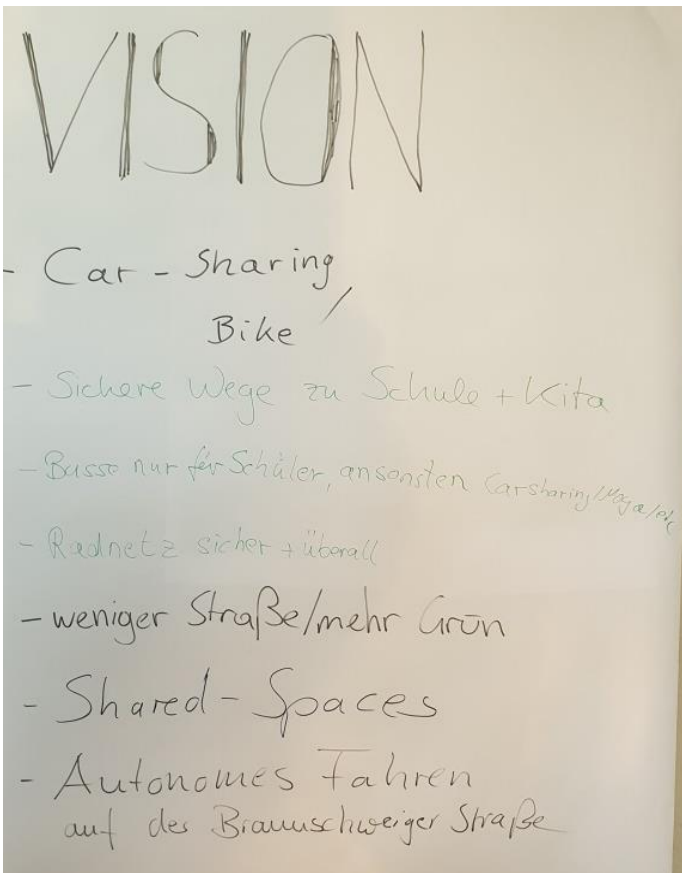 VISION
- Car - Sharing /
Bike
- Sichere Wege zu Schule + Kita
- Busse nur für Schüler, ansonsten Carsharing/Moga/etc
- Radnetz sicher + überall
- weniger Straße/mehr Grün
- Shared - Spaces
- Autonomes Fahren
auf der Braunschweiger Straße